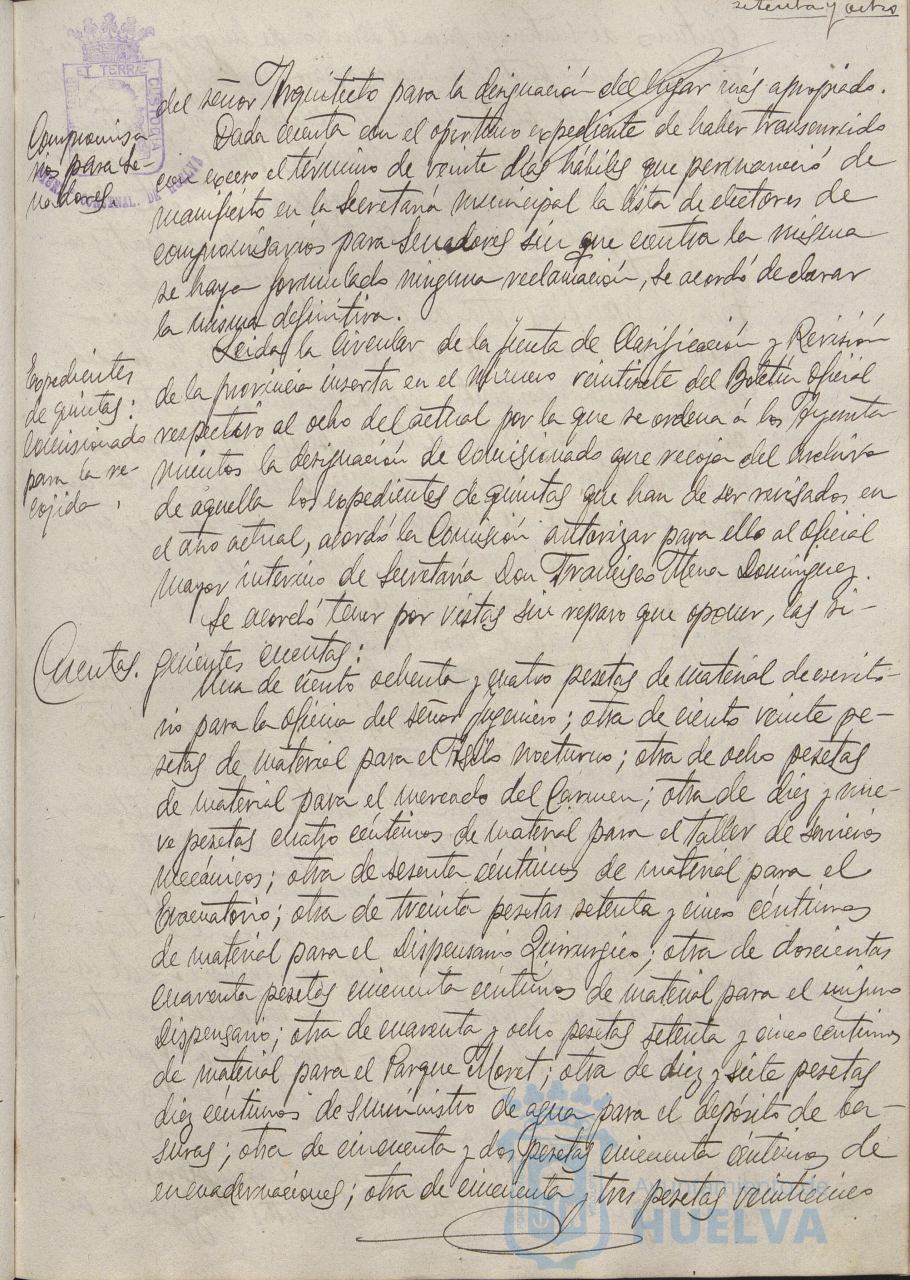 setenta y ocho
del señor Arquitecto para la designación del lugar más apropiado.
Compromisa
rios para Se-
nadores
Dada cuenta con el oportuno expediente de haber transcurrido
con exceso el término de veinte días hábiles que permaneció de
manifiesto en la Secretaría municipal la lista de electores de
compromisarios para Senadores sin que contra la misma
se haya formulado ninguna reclamación, se acordó declarar
la misma definitiva.
Expedientes
de quintas:
Comisionado
para la re-
cojida.
Leida la Circular de la Junta de Clasificación y Revisión
de la provincia inserta en el número veintisiete del Boletín Oficial
respectivo al ocho del actual por la que se ordena á los Ayunta
mientos la designación de Comisionado que recoja del Archivo
de aquella los expedientes de quintas que han de ser revisados en
el año actual, acordó la Comisión autorizar para ello al Oficial
mayor interino de Secretaría Don Francisco Mena Domínguez.
Cuentas.
Se acordó tener por vistas sin reparo que oponer, las si-
guientes cuentas:
Una de ciento ochenta y cuatro pesetas de material de escrito-
rio para la oficina del señor Ingeniero; otra de ciento veinte pe-
setas de material para el Asilo nocturno; otra de ocho pesetas
de material para el mercado del Carmen; otra de diez y nue-
ve pesetas cuatro céntimos de material para el taller de servicios
mecánicos; otra de sesenta céntimos de material para el
Evacuatorio; otra de treinta pesetas setenta y cinco céntimos
de material para el Dispensario Quirurgico; otra de doscientas
cuarenta pesetas cincuenta céntimos de material para el mismo
Dispensario; otra de cuarenta y ocho pesetas setenta y cinco céntimos
de material para el Parque Moret; otra de diez y siete pesetas
diez céntimos de suministro de agua para el depósito de ba-
suras; otra de cincuenta y dos pesetas cincuenta céntimos de
encuadernaciones; otra de cincuenta y tres pesetas veinticinco
Ayuntamiento de
HUELVA